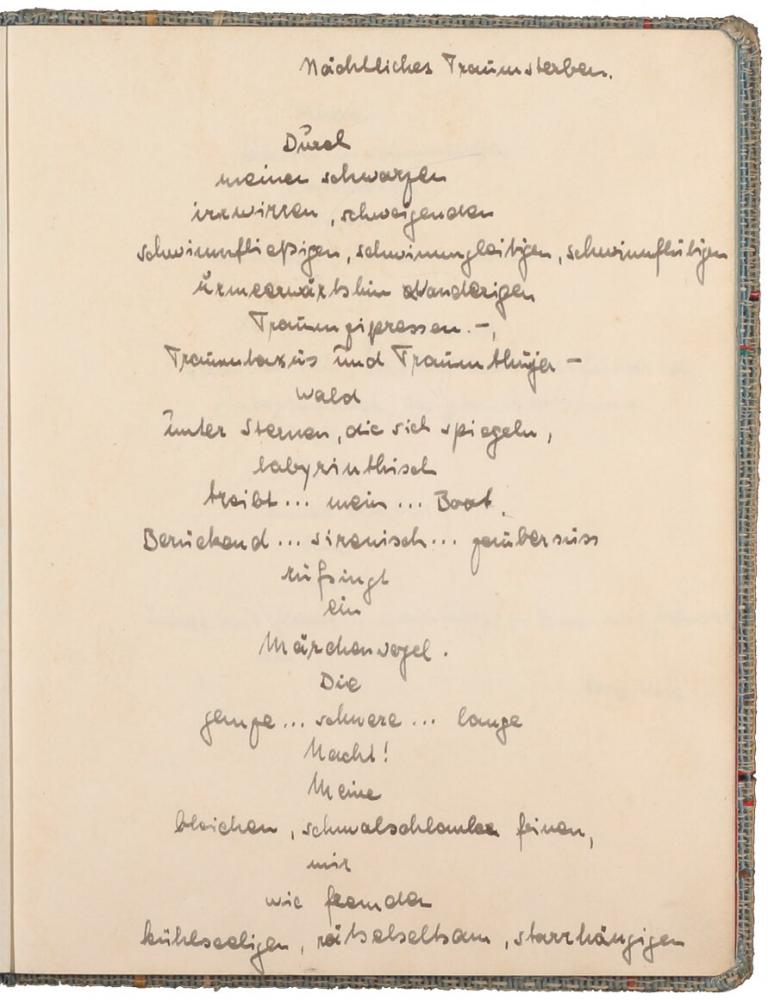 Nächtliches Traumsterben.
Durch
meinen schwarzen
irrwirren, schweigenden
schwimmfließigen, schwimmgleitigen, schwimmflutigen
urmeerwärtshin wanderigen
Traumzipressen.-,
Traumtaxus und Traumthuja –
wald
unter Sternen, die sich spiegeln,
labyrinthisch
treibt... mein... Boot.
Berückend... sirenisch... zaubersüss
rufsingt
ein
Märchenvogel.
Die
ganze... schwere... lange
Nacht!
Meine
bleichen, schmalschlanken feinen,
mir
wie fremden
kühlseeligen, rätselseltsam, starrhängigen